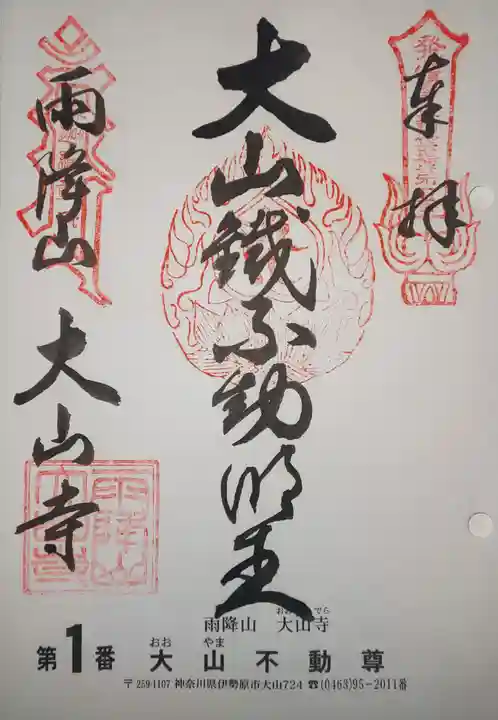 奉拝
大山鐵不動明王
雨降山 大山寺
雨降山 大山寺
おおやまでら
第1番 大山不動尊
おお やま
〒259-1107 神奈川県伊勢原市大山724 ☎(0463)95-2011番